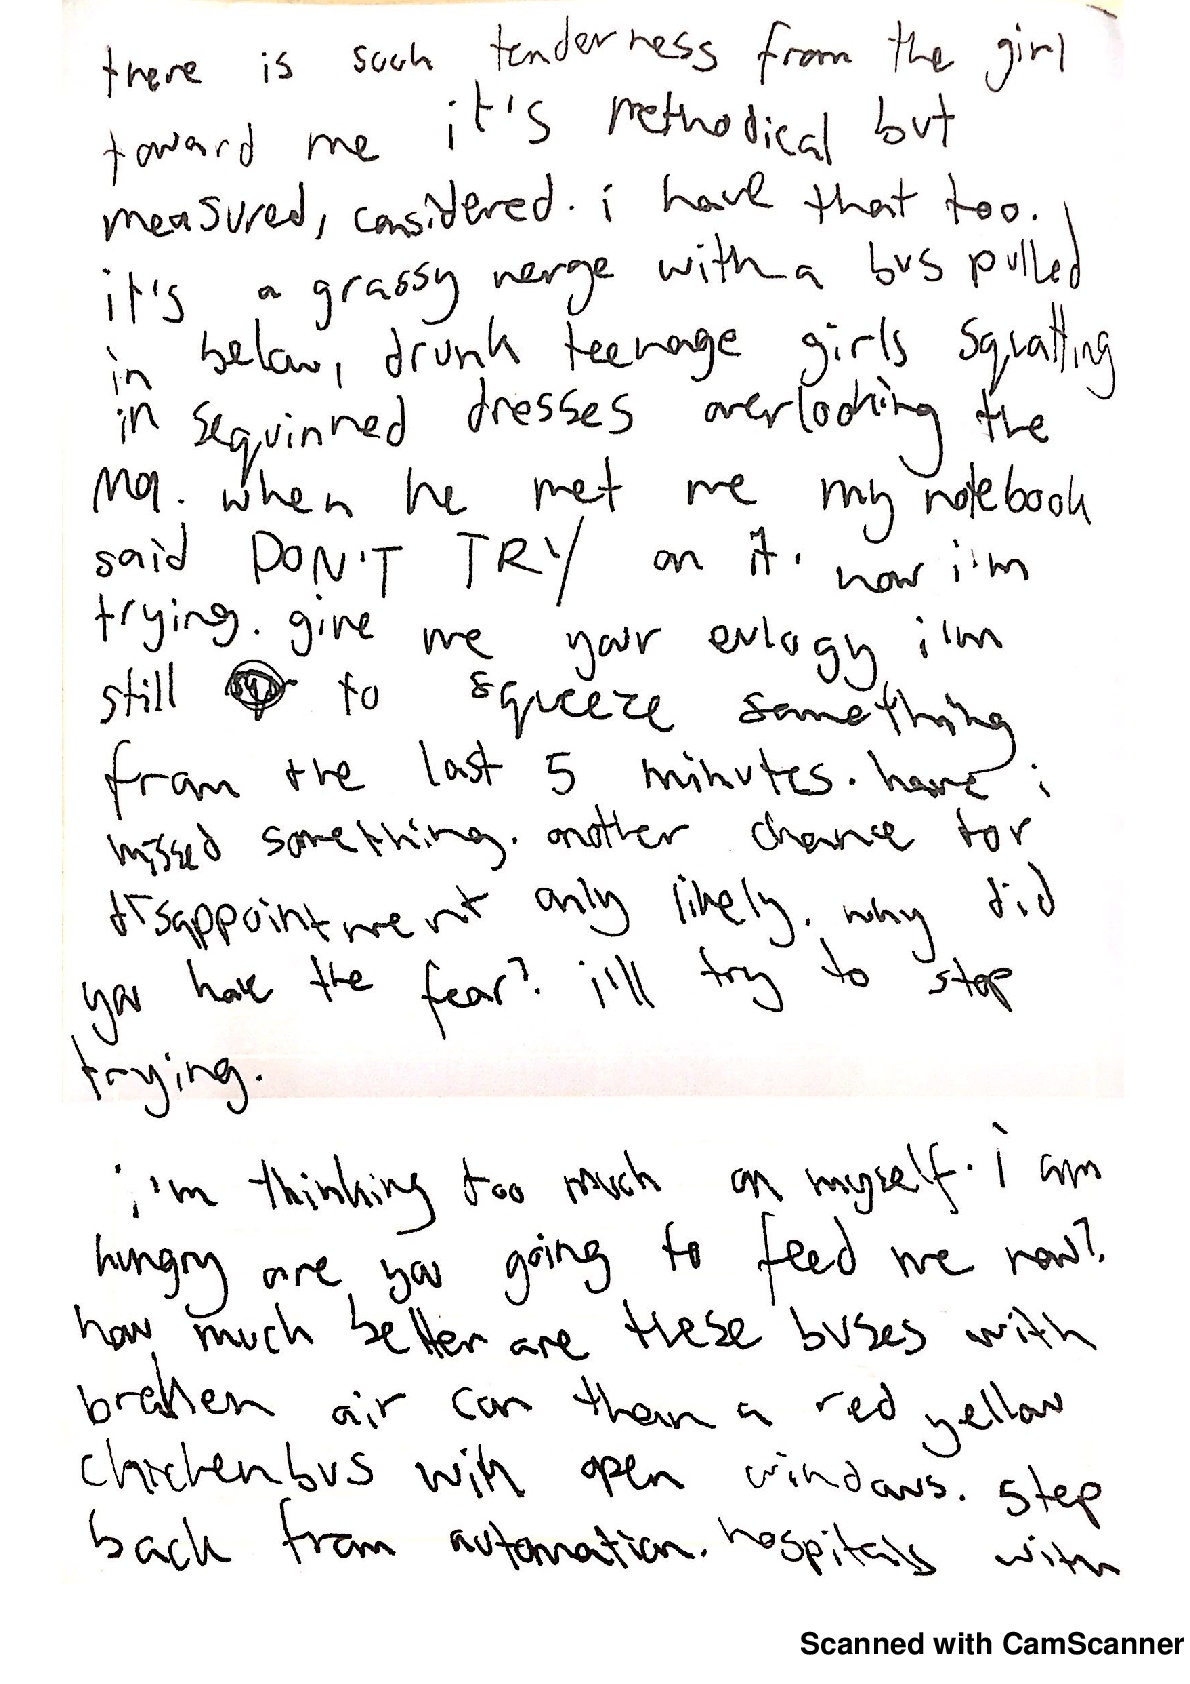 there is such tenderness from the girl
toward me it's methodical but
measured, considered. i have that too.
it's a grassy verge with a bus pulled
in below, drunk teenage girls squatting
in sequinned dresses overlooking the
M9. when he met me my notebook
said DON'T TRY on it. now i'm
trying. give me your eulogy i'm
still to squeeze something
from the last 5 minutes. have i
missed something. another chance for
disappointment only likely. why did
you have the fear? i'll try to stop
trying.
i'm thinking too much on myself. i am
hungry are you going to feed me now?
how much better are these buses with
broken air con than a red yellow
chickenbus with open windows. step
back from automation. hospitals with
Scanned with CamScanner